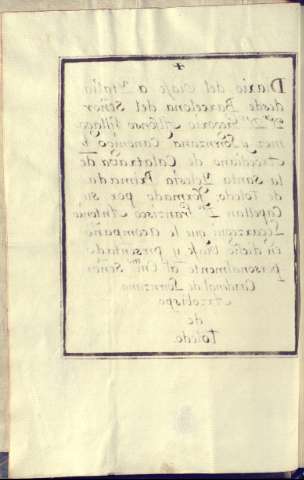 +
Diario del Viaje a Italia
desde Barcelona del Señor
Dn. Dn. Gregorio Alfonso Villago
mez y Lorenzana Canonigo y
Arcediano de Calatrava de
la Santa Iglesia Primada
de Toledo, formado por su
Capellan Dn. Francisco Antonio
que le acompañó
en dicho Viaje y presentado
personalmente al Señor
Cardenal de Lorenzana
Arzobispo
de
Toledo.